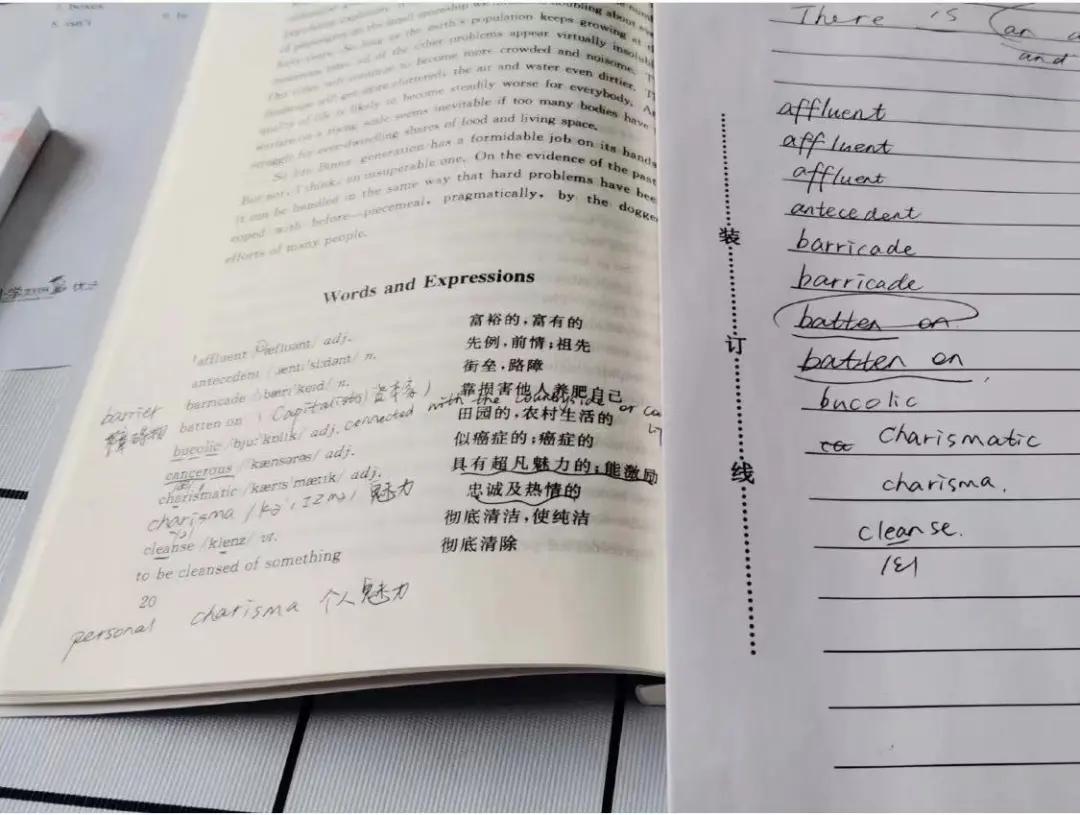 7. boxes
8. isn't
9. to
of passengers on the small spaceship we
doubling about every
forty years. So long as the earth's population keeps growing at
all of the other problems appear virtually insoluble.
Our cities will continue to become more crowded and noisome. T
landscape will get more cluttered, the air and water even dirtier. T
quality of life is likely to become steadily worse for everybody. A
warfare on a rising scale seems inevitable if too many bodies have
struggle for ever-dwindling shares of food and living space.
So generation has a formidable job on its hands
But not, I think, an insuperable one. On the evidence of the past
it can be handled in the same way that hard problems have been
coped with before—piecemeal, pragmatically, by the dogge
efforts of many people.
Words and Expressions
affluent /ˈæfluənt/ adj. 富裕的,富有的
antecedent /ˌæntiˈsiːdənt/ n. 先例,前情;祖先
barricade /ˌbæriˈkeid/ n. 街垒,路障
barrier
batten on 靠损害他人养肥自己
Capitalists(资本家)
connected with the countryside or
bucolic /bjuːˈkɒlik/ adj. 田园的,农村生活的
cancerous /ˈkænsərəs/ adj. 似癌症的;癌症的
charismatic /ˌkærizˈmætik/ adj. 具有超凡魅力的;能激励
忠诚及热情的
charisma 魅力
cleanse /klenz/ vt. 彻底清洁,使纯洁
to be cleansed of something 彻底清除
20
personal charisma 个人魅力
There is an
and
affluent
affluent
affluent
antecedent
barricade
barricade
batten on
batten on
bucolic
charismatic
charisma.
cleanse.
/ɛ/
装
订
线